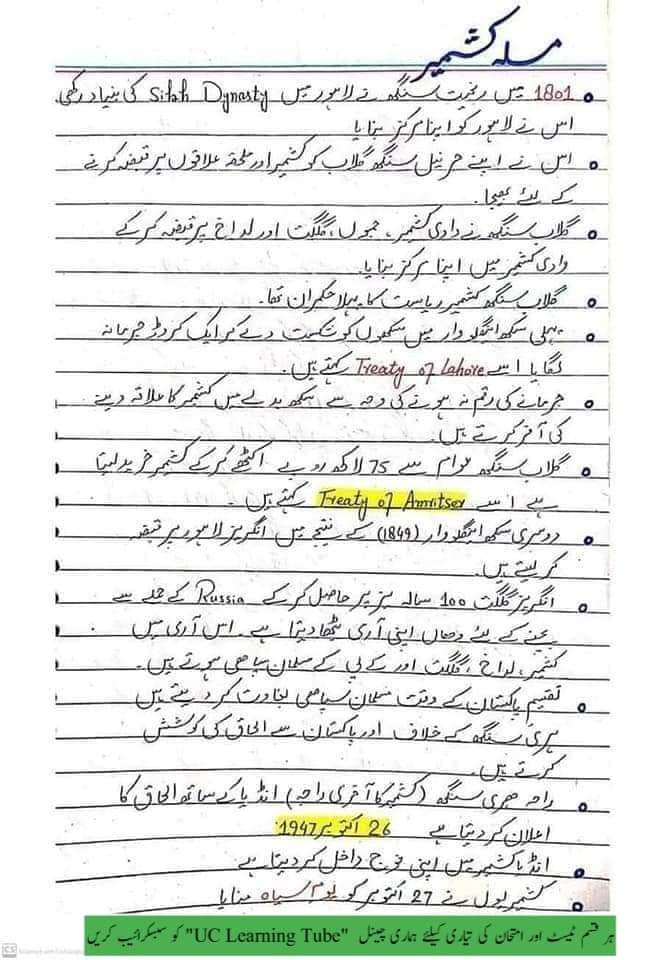 مسلہ کشمیر
1801 میں رنجیت سنگھ نے لاہور میں Sikh Dynasty کی بنیاد رکھی
اس نے لاہور کو اپنا مرکز بنایا
اس نے اپنے جرنیل سنگھ گلاب کو کشمیر اور ملحقہ علاقوں پر قبضہ کرنے
کے لئے بھیجا.
گلاب سنگھ نے وادی کشمیر، جموں، گلگت اور لداخ پر قبضہ کر کے
وادی کشمیر میں اپنا مرکز بنایا.
گلاب سنگھ کشمیر ریاست کا پہلا حکمران تھا.
پہلی سکھ اینگلو وار میں سکھوں کو شکست دے کر ایک کروڑ جرمانہ
لگایا اسے Treaty of Lahore کہتے ہیں.
جرمانے کی رقم نہ ہونے کی وجہ سے سکھ بدلے میں کشمیر کا علاقہ دینے
کی آفر کرتے ہیں.
گلاب سنگھ عوام سے 75 لاکھ روپے اکٹھے کر کے کشمیر خرید لیتا
ہے اسے Treaty of Amritser کہتے ہیں.
دوسری سکھ اینگلو وار (1849) کے نتیجے میں انگریز لاہور پر قبضہ
کر لیتے ہیں.
انگریز گلگت 100 سالہ لیز پر حاصل کر کے Russia کے حملے سے
بچنے کے لئے وھاں اپنی آرمی بٹھا دیتا ہے. اس آرمی میں
کشمیر، لداخ، گلگت اور کے پی کے مسلمان سپاھی ہوتے ہیں.
تقسیم پاکستان کے وقت مسلمان سپاھی بغاوت کر دیتے ہیں
ہری سنگھ کے خلاف اور پاکستان سے الحاق کی کوشش
کرتے ہیں.
راجہ ھری سنگھ (کشمیر کا آخری راجہ) انڈیا کے ساتھ الحاق کا
اعلان کر دیتا ہے 26 اکتوبر 1947.
انڈیا کشمیر میں اپنی فوج داخل کر دیتا ہے
کشمیریوں نے 27 اکتوبر کو یوم سیاہ منایا
ہر قسم ٹیسٹ اور امتحان کی تیاری کیلئے ہماری چینل "UC Learning Tube" کو سبسکرائیب کریں
CS